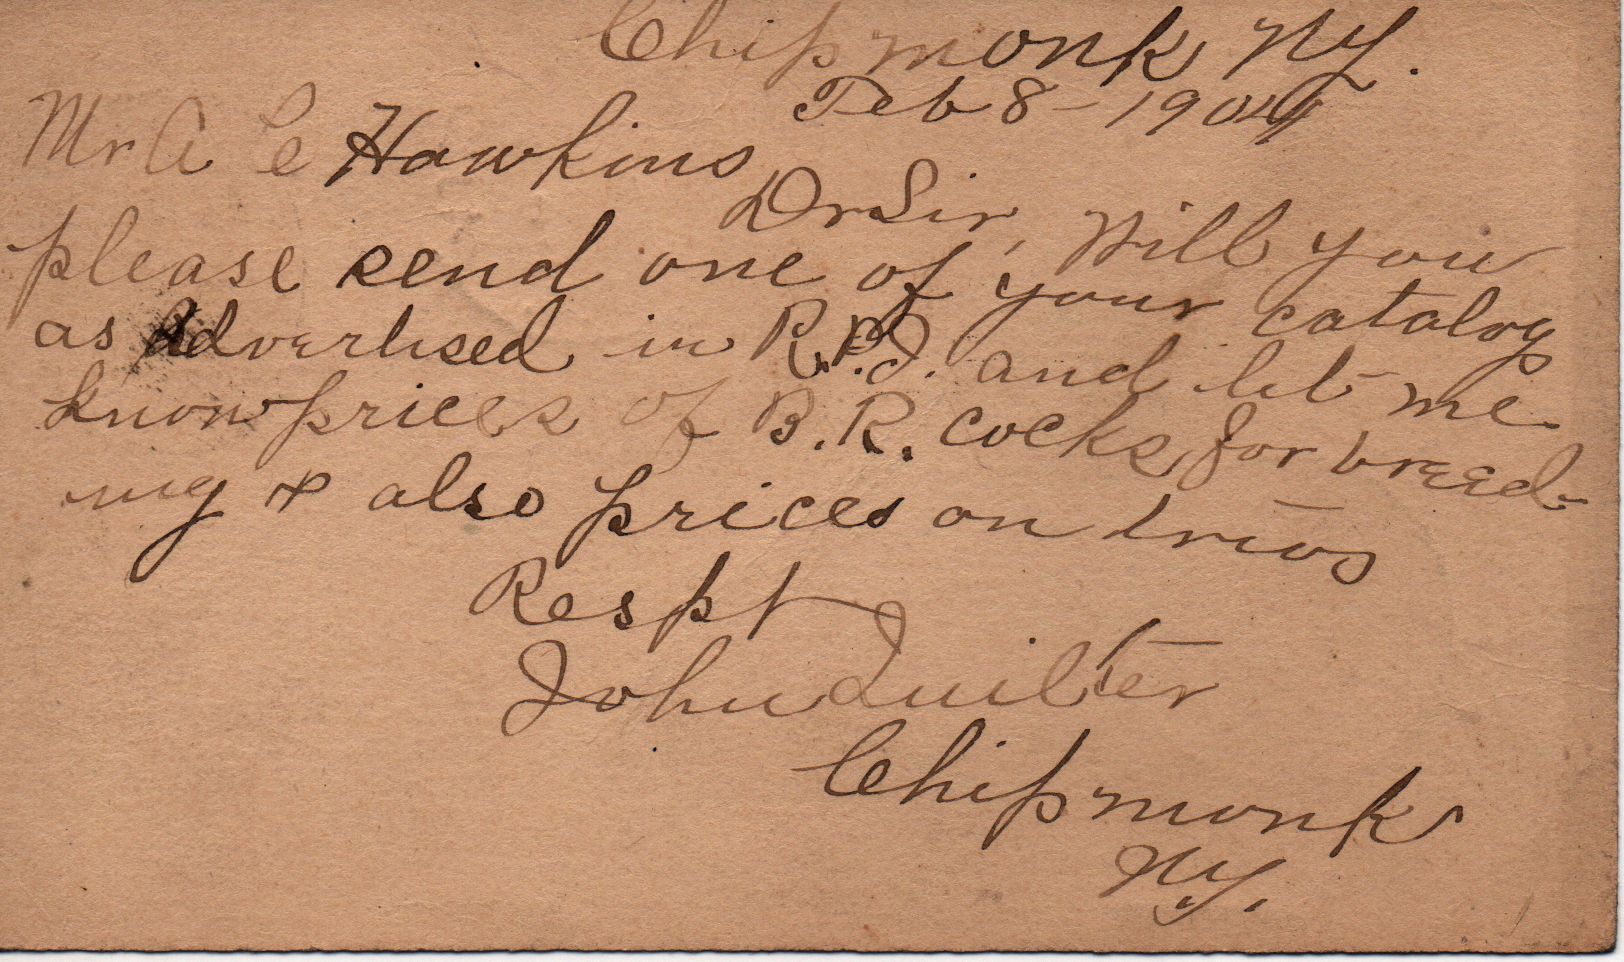 Chipmonk NY.
Feb 8 - 1904
Mr A C Hawkins
Dr Sir, Will you
please send one of your catalog
as Advertised in R.P.J. and let me
know prices of B.R. cocks for breed-
ing & also prices on trios
Respt
John Quilter
Chipmonk
N.Y.